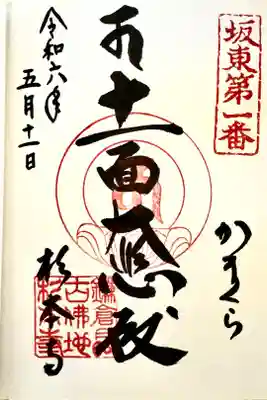 坂東第一番
かまくら
十一面大悲殿
杉本寺
令和六年
五月十一日
鎌倉最
古佛地
杉本寺